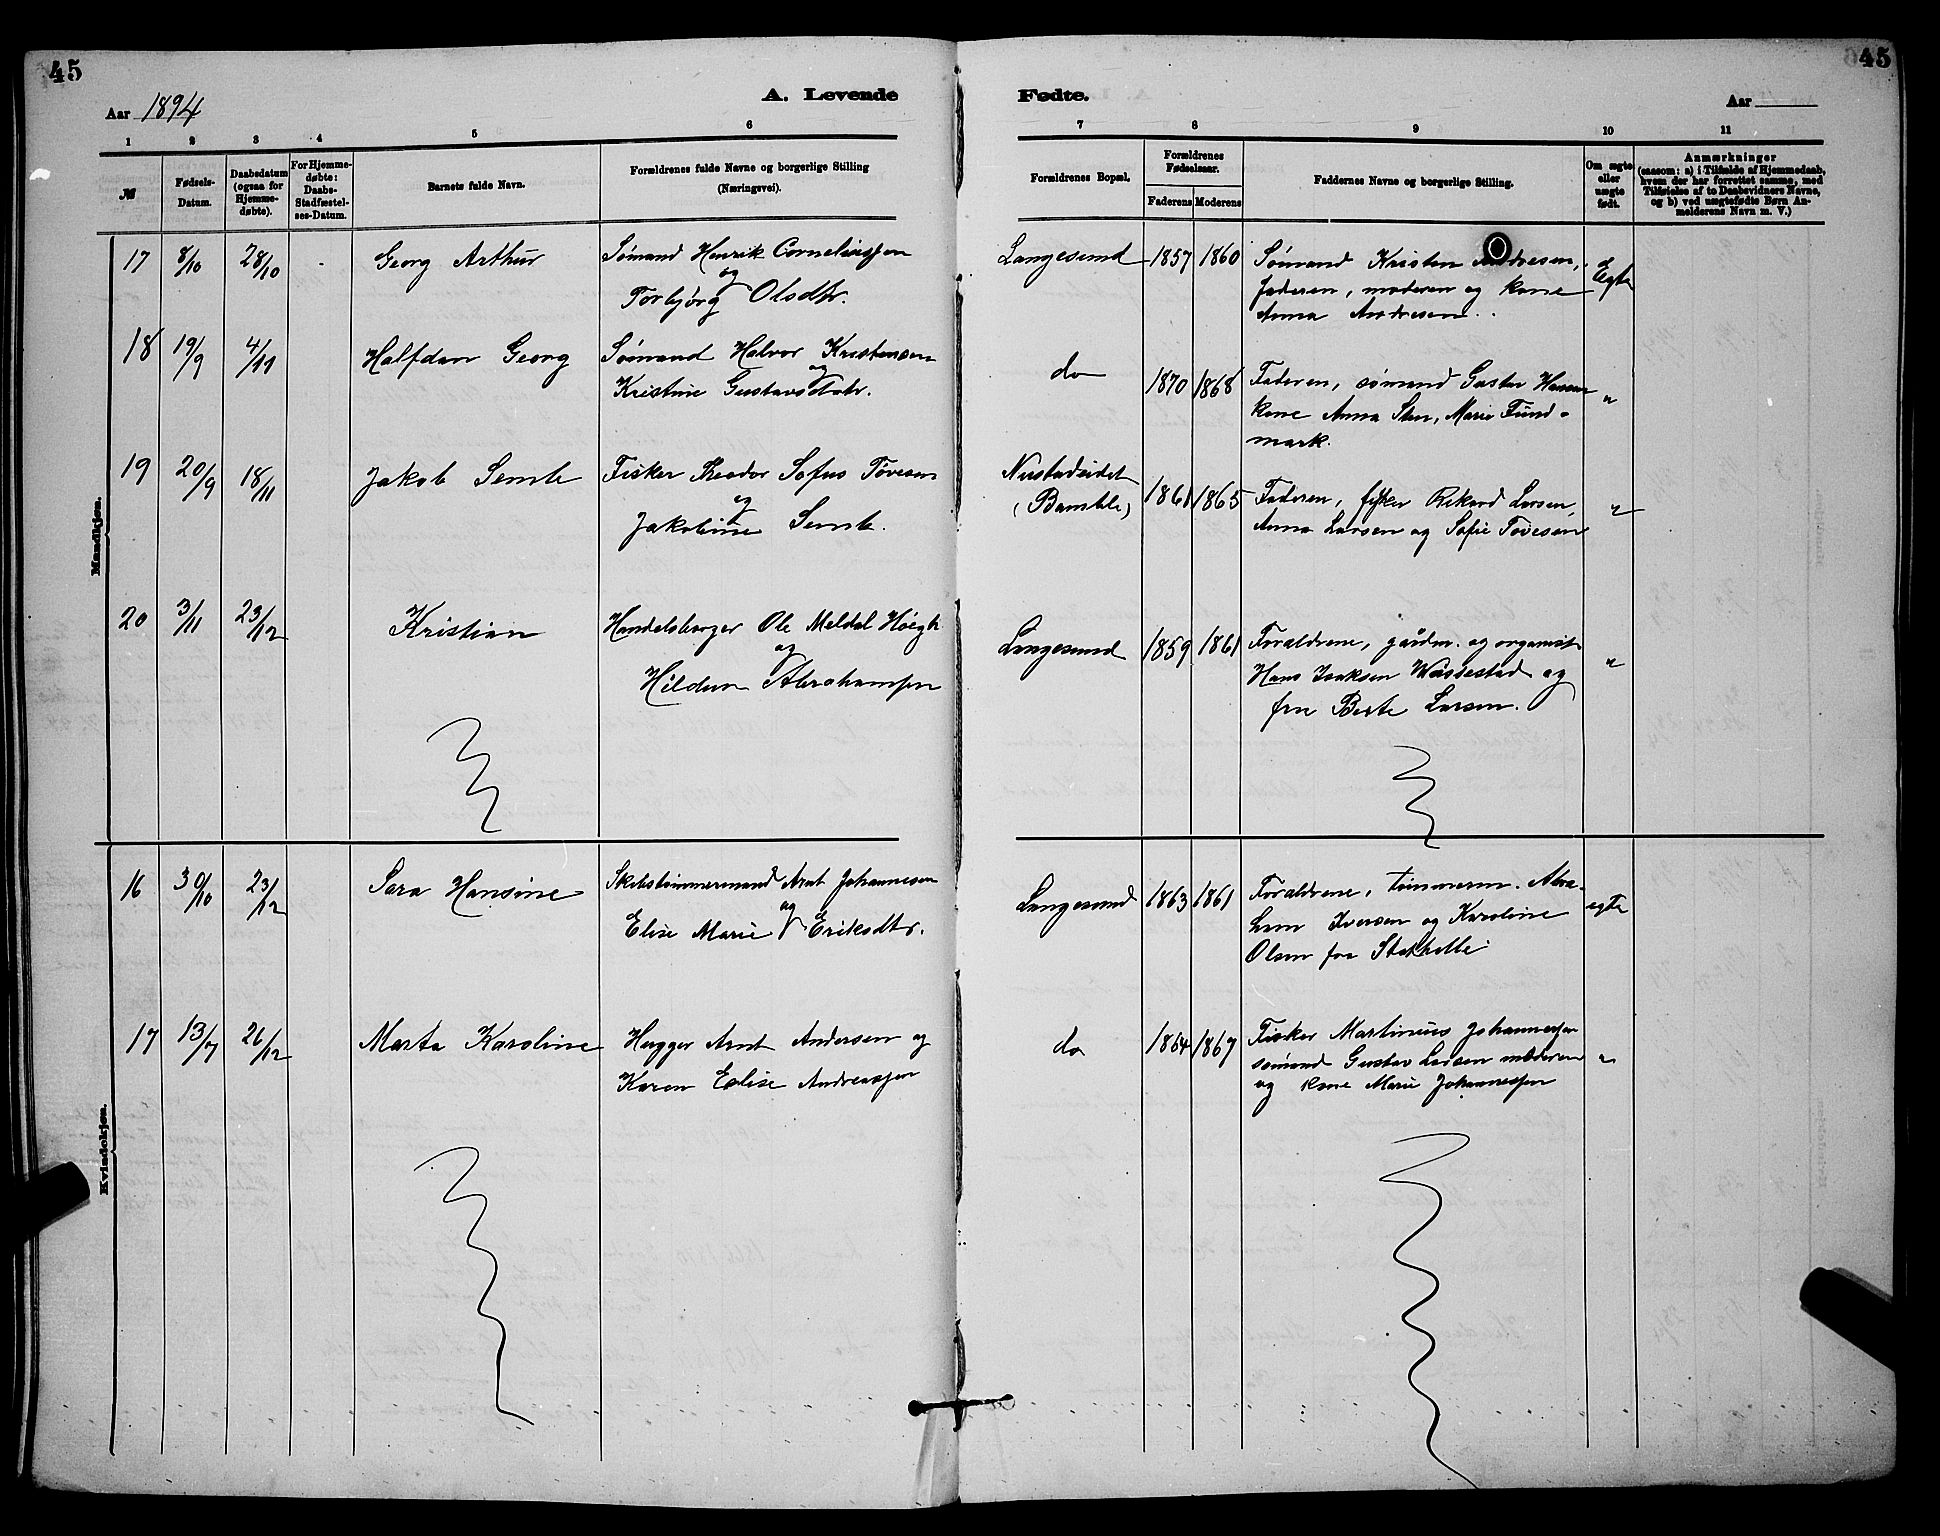 45
45
Aar 1894
A. Levende
Fødte.
Aar
1 2 3 4 5 6 7 8 9 10 11
№
Fødsels-
Datum.
Daabsdatum
(ogsaa for
Hjemme-
døbte).
For Hjemme-
døbte:
Daabs-
Stadfæstel-
ses-Datum.
Barnets fulde Navn.
Forældrenes fulde Navne og borgerlige Stilling
(Næringsvei).
Forældrenes Bopæl.
Forældrenes
Fødselsaar.
Faderens Moderens
Faddernes Navne og borgerlige Stilling.
Om ægte
eller
uægte
født.
Anmærkninger
(saasom: a) i Tilfælde af Hjemmedaab,
hvem der har forrettet samme, med
Tilføielse af to Daabsvidners Navne,
og b) ved uægtefødte Børn An-
melderens Navn m. V.)
Mandkjøn.
17 8/10 28/10 - Georg Arthur
Sømand Henrik Corneliussen
og
Torbjørg Olsdtr.
Langesund 1857 1860
Sømand Kristen Andresen,
faderen, moderen og kone
Anna Andresen.
Egte
18 19/9 4/11 Halfdan Georg
Sømand Halvor Kristensen
og
Kristine Gustavsdatr.
do 1870 1868
Faderen, sømand Gustav Hansen
kone Anna Sten, Marie Fund-
mark.
"
19 20/9 18/11 Jakob Semb
Fisker Theodor Sofus Tovesen
og
Jakobine Semb.
Nustadeidet
(Bamble)
1861 1865
Faderen, fisker Rikard Larsen,
Anna Larsen og Sofie Tovesen
"
20 3/11 23/12 Kristian
Handelsborger Ole Meldal Høegh
og
Hildur Abrahamsen
Langesund 1859 1861
Forældrene, gårdm. og organist
Hans Isaksen Wassestad og
fru Berte Larsen.
"
Kvindekjøn.
16 30/10 23/12 Sara Hansine
Skibstømmermand Arnt Johannesen
og
Elise Marie Eriksdtr.
Langesund 1863 1861
Forældrene, tømmerm. Abra-
ham Iversen og Karoline
Olsen fra Stathelle
egte
17 13/7 26/12 Marta Karoline
Hugger Arnt Andersen og
Karen Elise Andreassen
do 1864 1867
Fisker Martinius Johannessen
sømand Gustav Larsen moderen
og kone Marie Johannessen
"